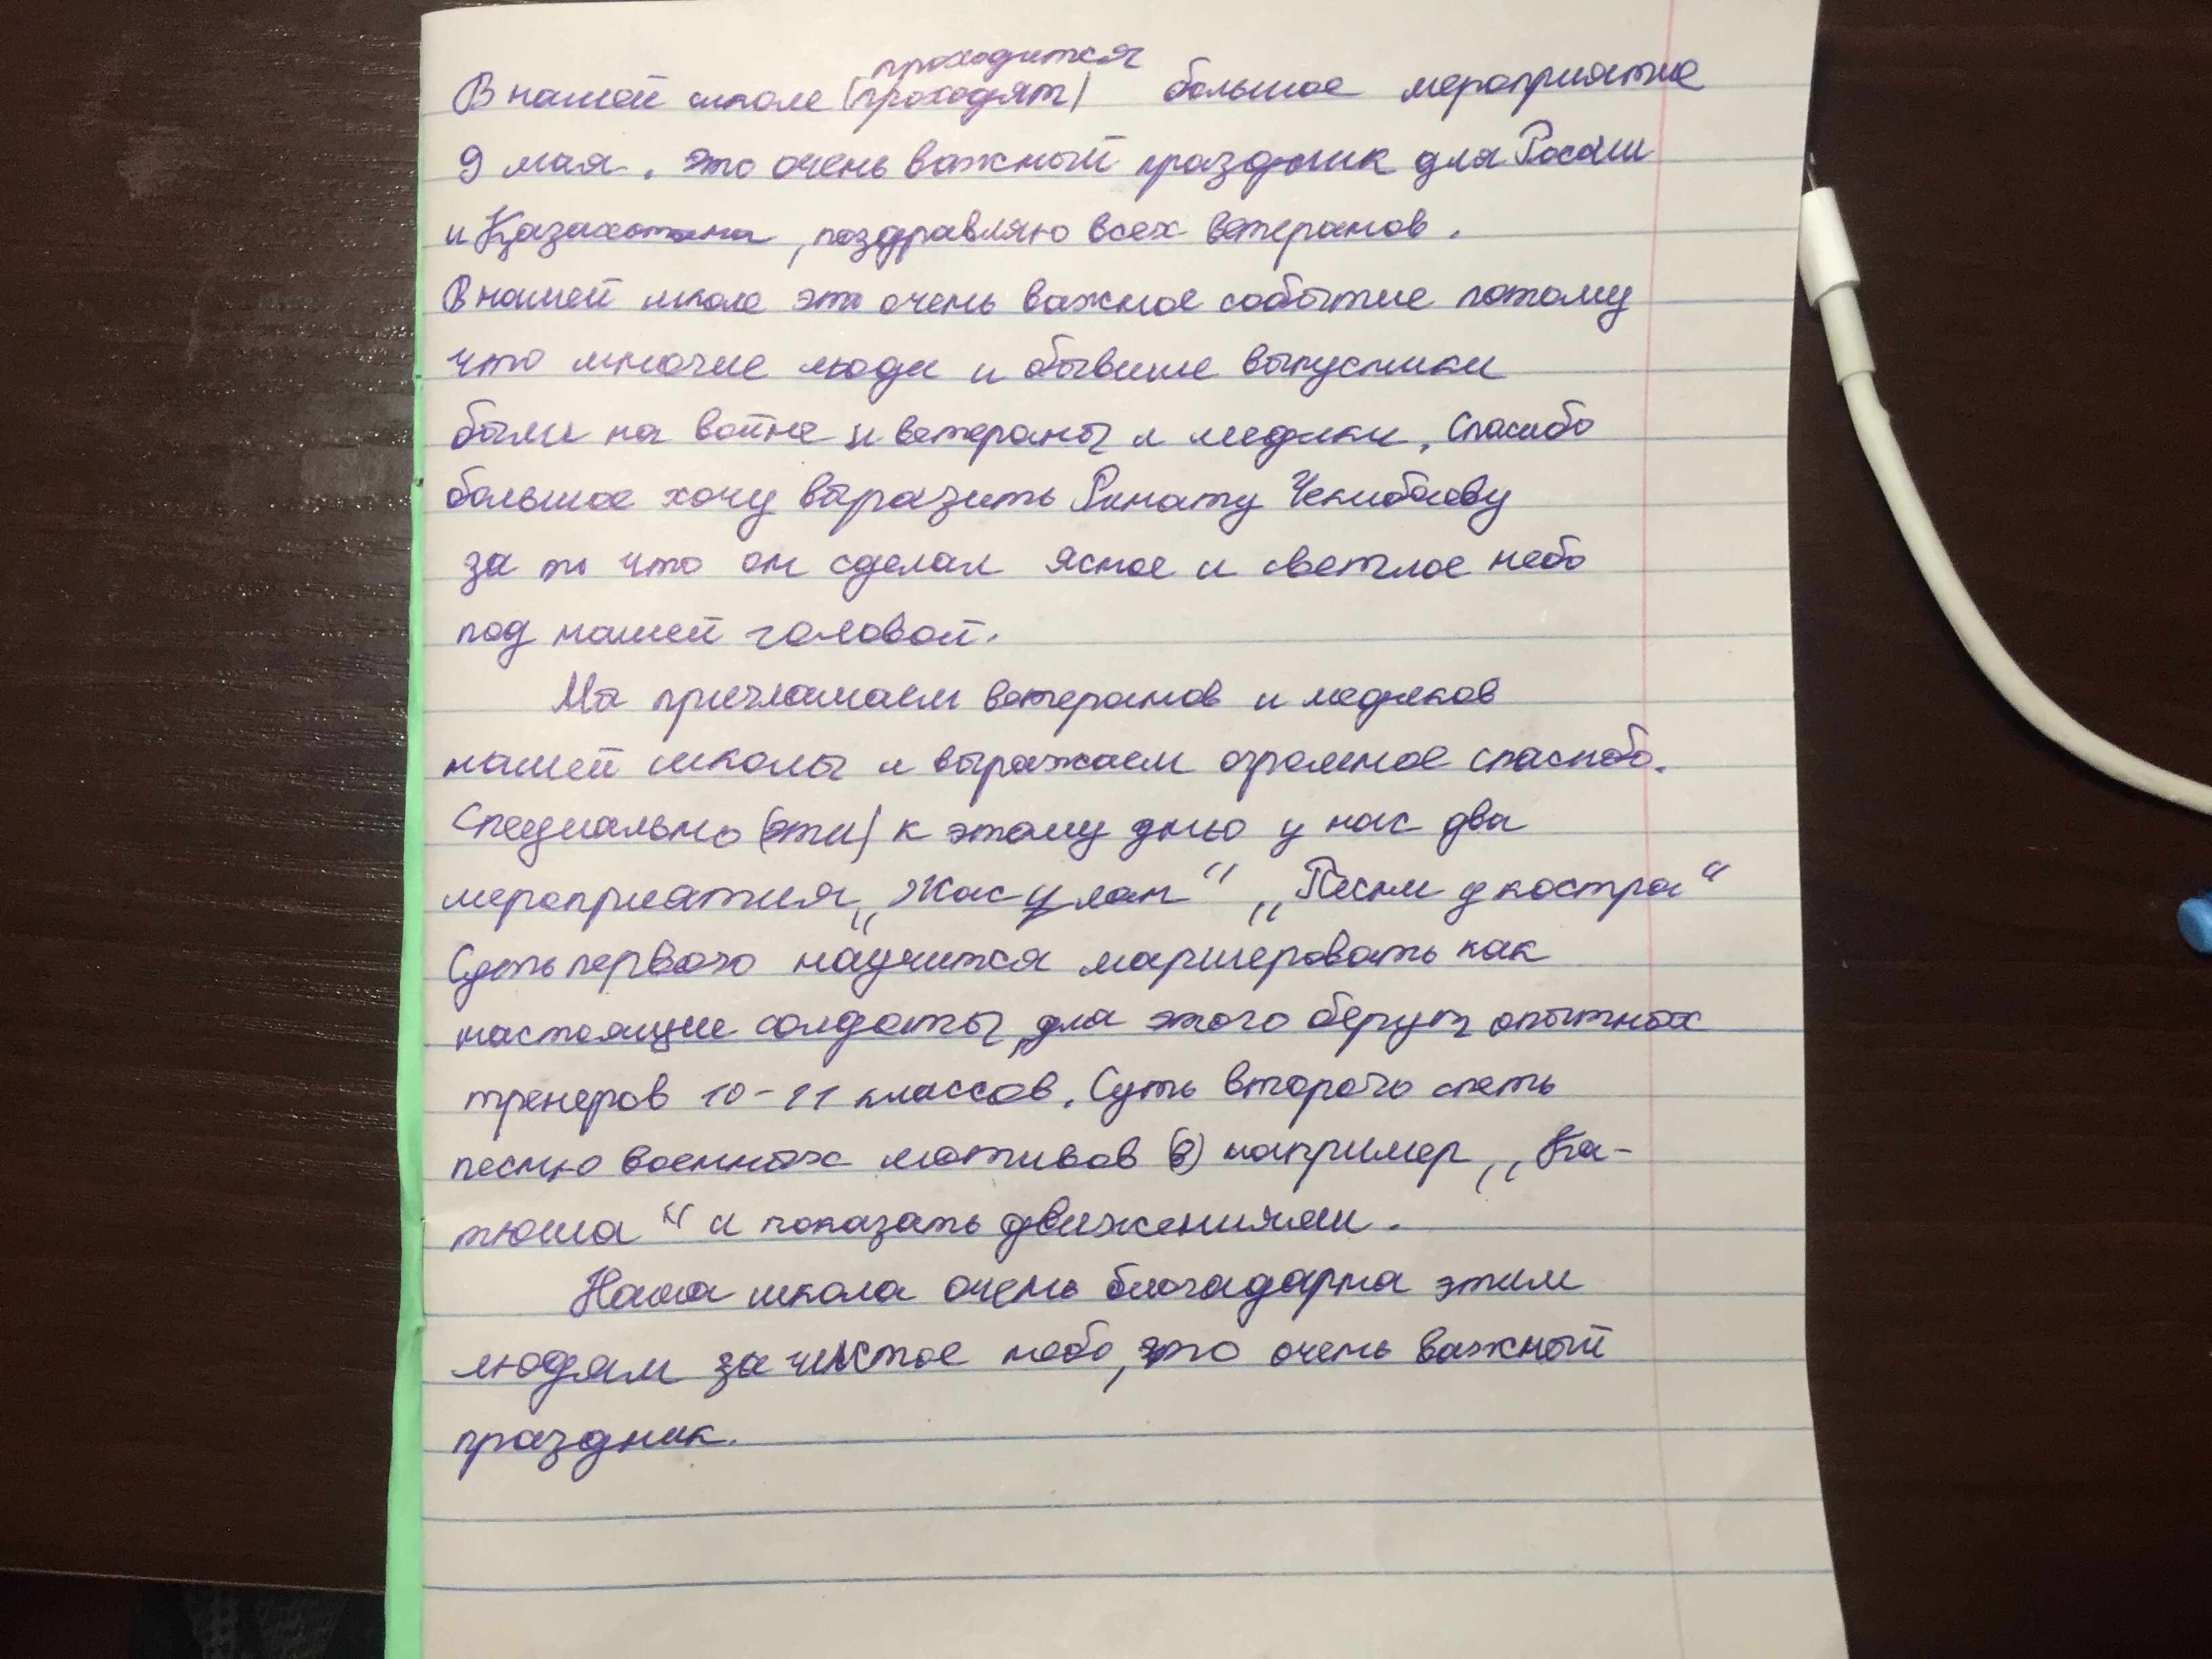 проходится
В нашей школе (проходят) большое мероприятие
9 мая. Это очень важный праздник для России
и Казахстана, поздравляю всех ветеранов.
В нашей школе это очень важное событие потому
что многие люди и бывшие выпусники
были на войне и ветераны и медики. Спасибо
большое хочу выразить Ринату Чекибаеву
за то что он сделал ясное и светлое небо
под нашей головой.
Мы приглашаем ветеранов и медиков
нашей школы и выражаем огромное спасибо.
Специально (эти) к этому дню у нас два
мероприятия „Жас ұлан“ „Песни у костра“
Суть первого научится маршеровать как
настоящие солдаты, для этого берут опытных
тренеров 10-11 классов. Суть второго спеть
песню военных мотивов (в) например „Ка-
тюша“ и показать движениями.
Наша школа очень благадарна этим
людям за чистое небо, это очень важный
праздник.